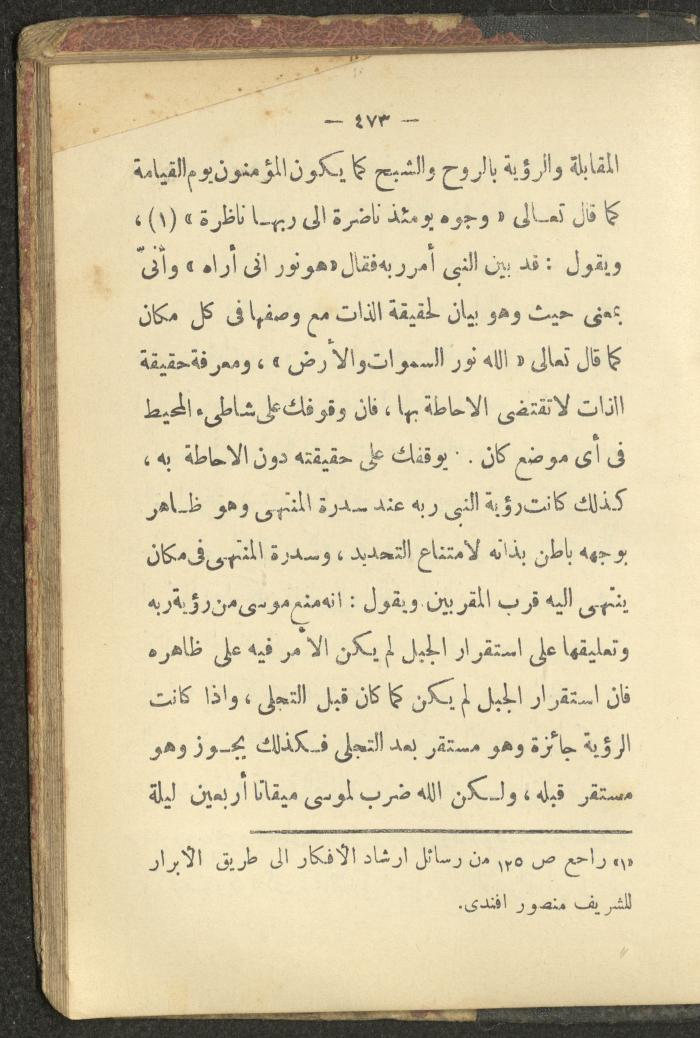 — ٤٧٣ —
المقابلة والرؤية بالروح والشبح كما يكون المؤمنون يوم القيامة
كما قال تعالى « وجوه يومئذ ناضرة الى ربها ناظرة » (١) ،
ويقول : قد بين النبى أمر ربه فقال «هو نور انى أراه » وأنىّ
بمعنى حيث وهو بيان لحقيقة الذات مع وصفها فى كل مكان
كما قال تعالى « الله نور السموات والأرض » ، ومعرفة حقيقة
الذات لاتقتضى الاحاطة بها ، فان وقوفك على شاطىء المحيط
فى أى موضع كان . . يوقفك على حقيقته دون الاحاطة به ،
كذلك كانت رؤية النبى ربه عند سدرة المنتهى وهو ظاهر
بوجهه باطن بذاته لامتناع التحديد ، وسدرة المنتهى فى مكان
ينتهى اليه قرب المقربين ويقول : انه منع موسى من رؤية ربه
وتعليقها على استقرار الجبل لم يكن الأمر فيه على ظاهره
فان استقرار الجبل لم يكن كما كان قبل التجلى ، واذا كانت
الرؤية جائزة وهو مستقر بعد التجلى فكذلك يجوز وهو
مستقر قبله ، ولكن الله ضرب لموسى ميقاتا أربعين ليلة
«١» راجع ص ١٢٥ من رسائل ارشاد الأفكار الى طريق الأبرار
للشريف منصور افندى.